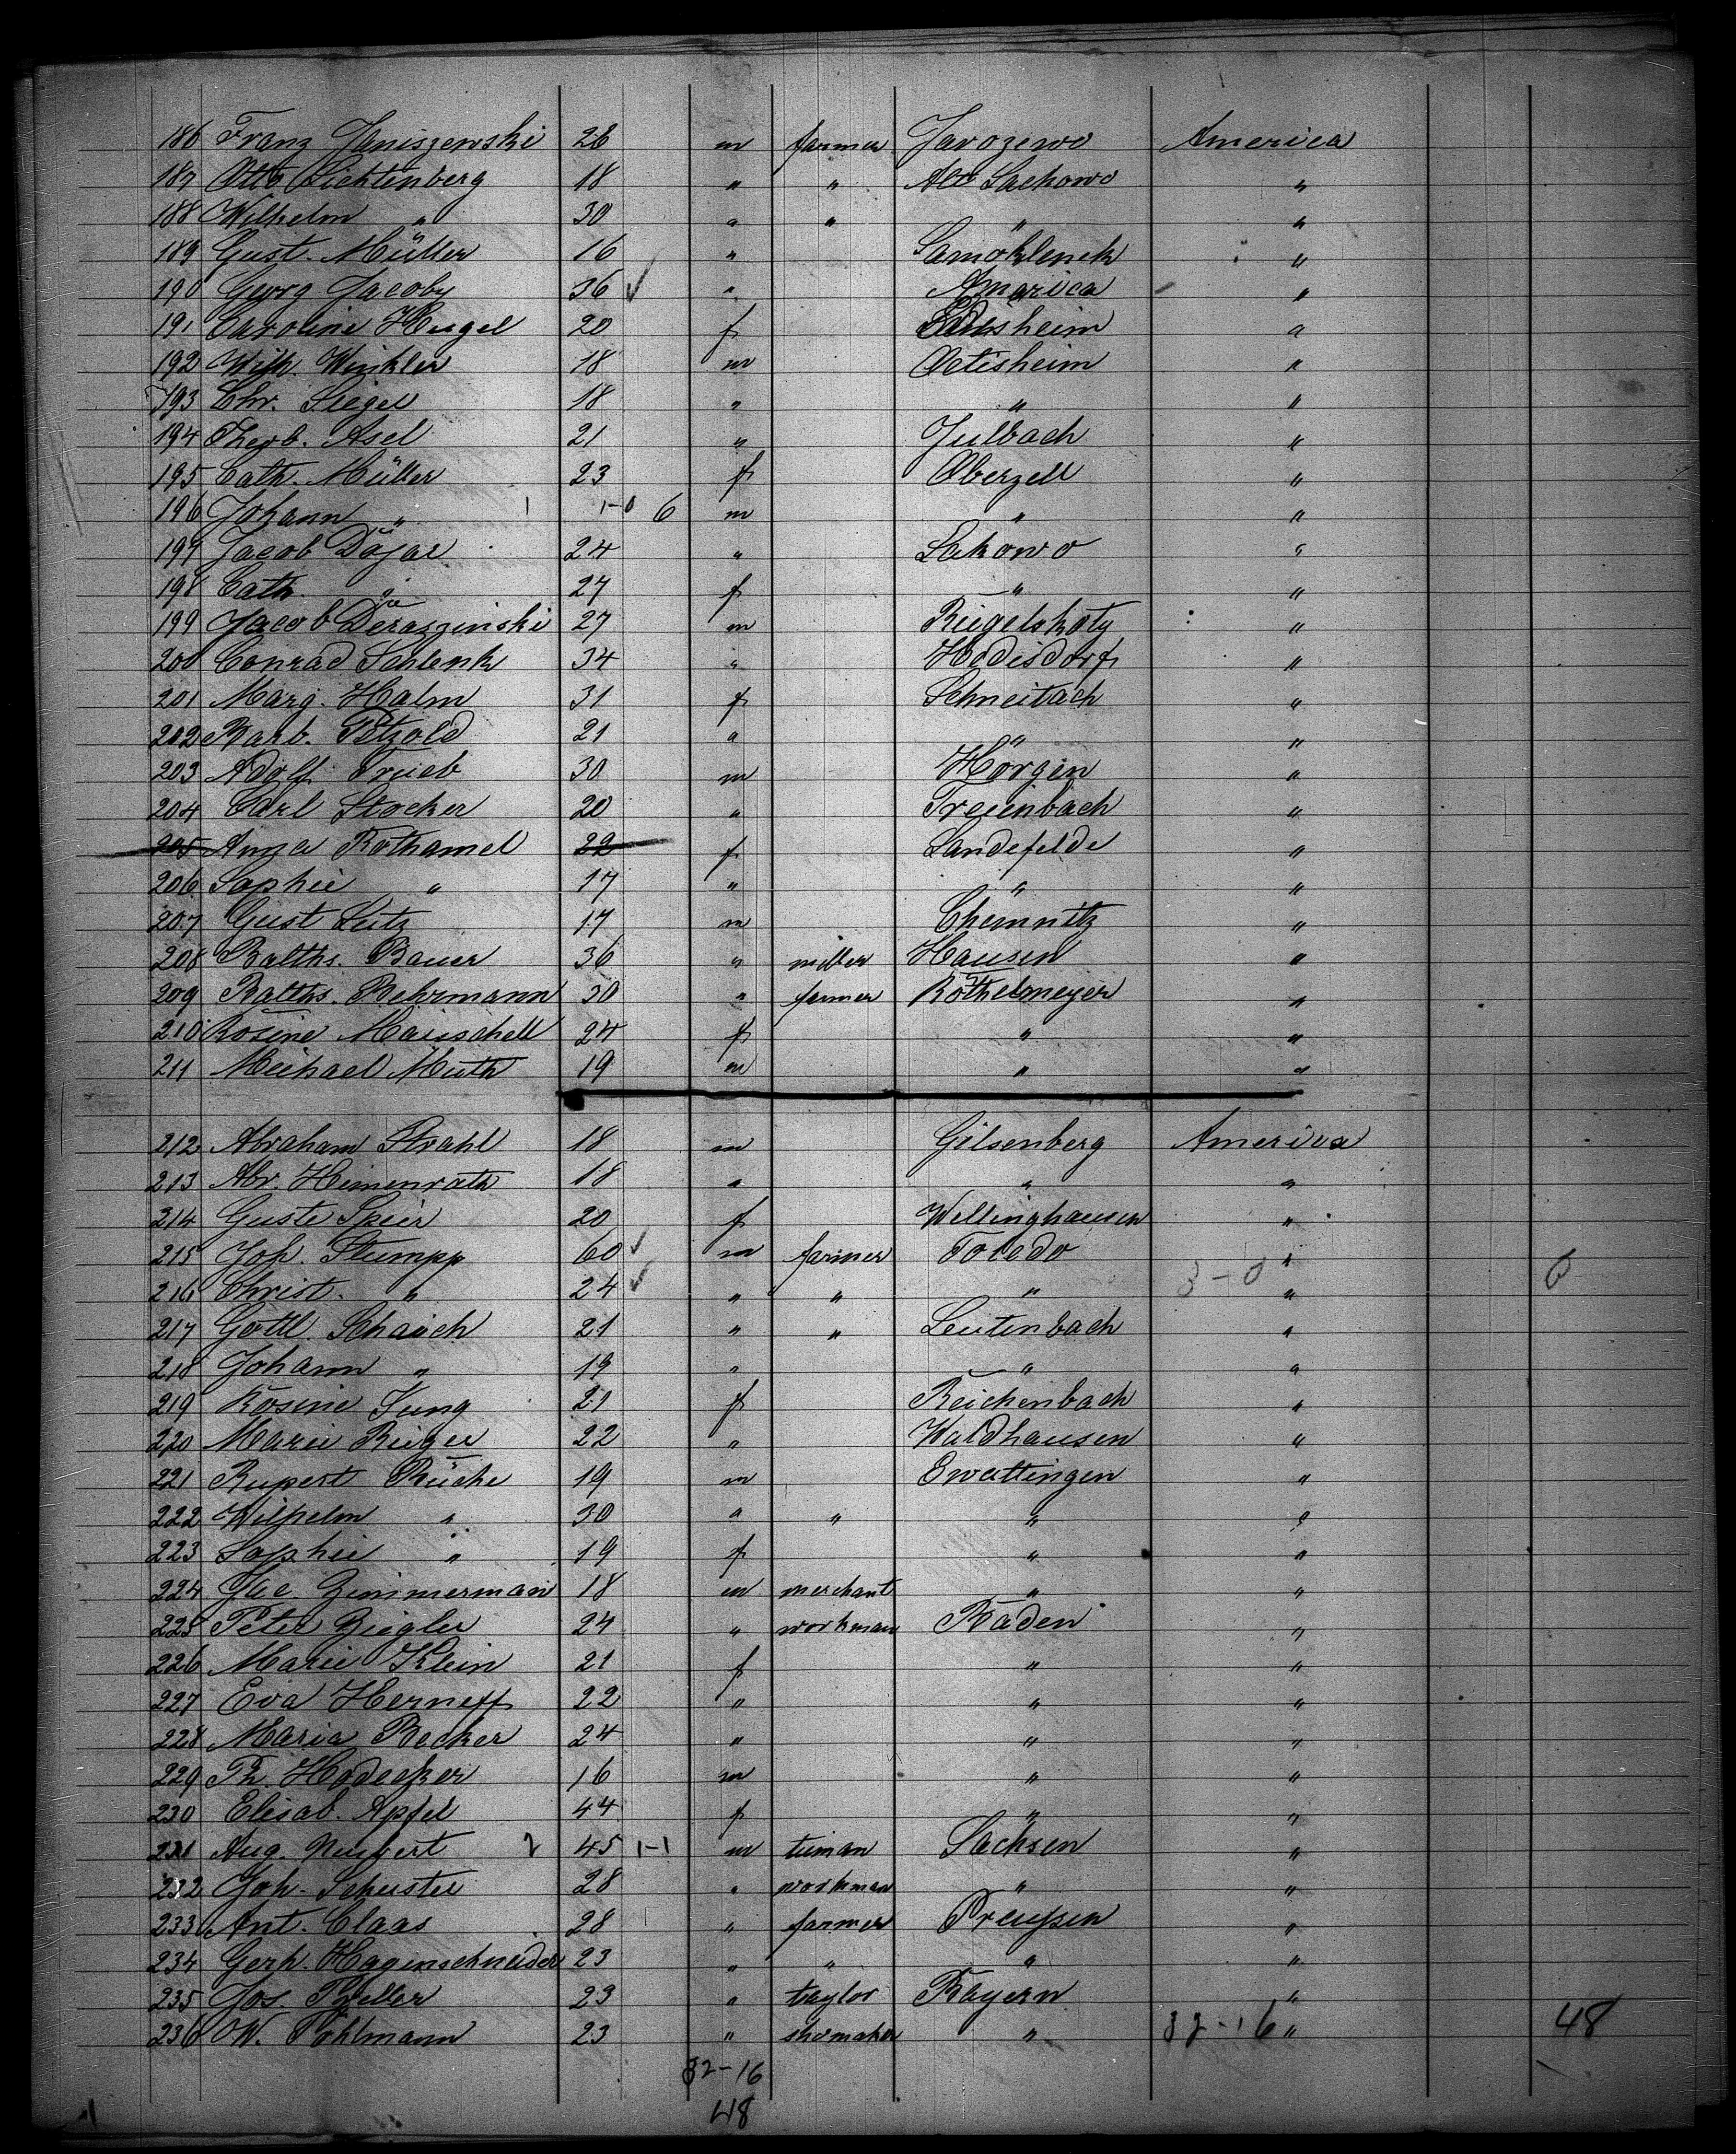 186 Franz Janiszewski 26 m farmer Jarozewo America
187 Otto Lichtenberg 18 " " Alt Lachowo "
188 Wilhelm " 30 " " " "
189 Gust. Müller 16 " Samoklensk "
190 Georg Jacoby 36 ✓ " America "
191 Caroline Hugel 20 f "
192 Wilh. Winkler 18 m Oetisheim "
193 Chr. Siegel 18 " " "
194 Theob. Asel 21 " Julbach "
195 Cath. Müller 23 f Oberzell "
196 Johann " 1 1-0 6 m " "
197 Jacob Dajar 24 " Lakowo "
198 Cath. " 27 f " "
199 Jacob Deraszinski 27 m "
200 Conrad Schlenk 34 " Hedisdorf "
201 Marg. Halm 31 f Schneitach "
202 Barb. Petzold 21 " " "
203 Adolf Trueb 30 m Horgen "
204 Carl Stocker 20 " Freienbach "
205 Anna Rothamel 22 f Landefelde "
206 Sophie " 17 " " "
207 Gust Leitz 17 m Chemnitz "
208 Balths. Bauer 36 " miller Hausen "
209 Balths. Behrmann 30 " farmer Röthelmeyer "
210 Rosine Mauschell 24 f " "
211 Michael Muth 19 m " "
212 Abraham Strahl 18 m Gilsenberg America
213 Abr. Heimenrath 18 " " "
214 Guste Speier 20 f Willinghausen "
215 Joh. Stumpp 60 ✓ m farmer Toledo "
216 Christ. " 24 ✓ " " " 3-0 "
217 Gottl. Schaich 21 " " Leutenbach "
218 Johann " 19 " " "
219 Rosine Jung 21 f Reichenbach "
220 Marie Rieger 22 " Waldhausen "
221 Rupert Büche 19 m Ewattingen "
222 Wilhelm " 30 " " " "
223 Sophie " 19 f " "
224 Jac Zimmerman 18 m merchant " "
225 Peter Ziegler 24 " workman Baden "
226 Marie Klein 21 f " "
227 Eva Herneff 22 " " "
228 Maria Becker 24 " " "
229 Ph. Hodecker 16 m " "
230 Elisab. Apfel 44 f " "
231 Aug. Neubert 45 1-1 m Sachsen "
232 Joh. Schuster 28 " workman " "
233 Ant. Claas 28 " farmer Preußen "
234 Gerh. Hagenschneider 23 " " " "
235 Jos. Beller 23 " taylor Bayern "
236 W. Pöhlmann 23 " shomaker " 32-16 " 48
32-16
48